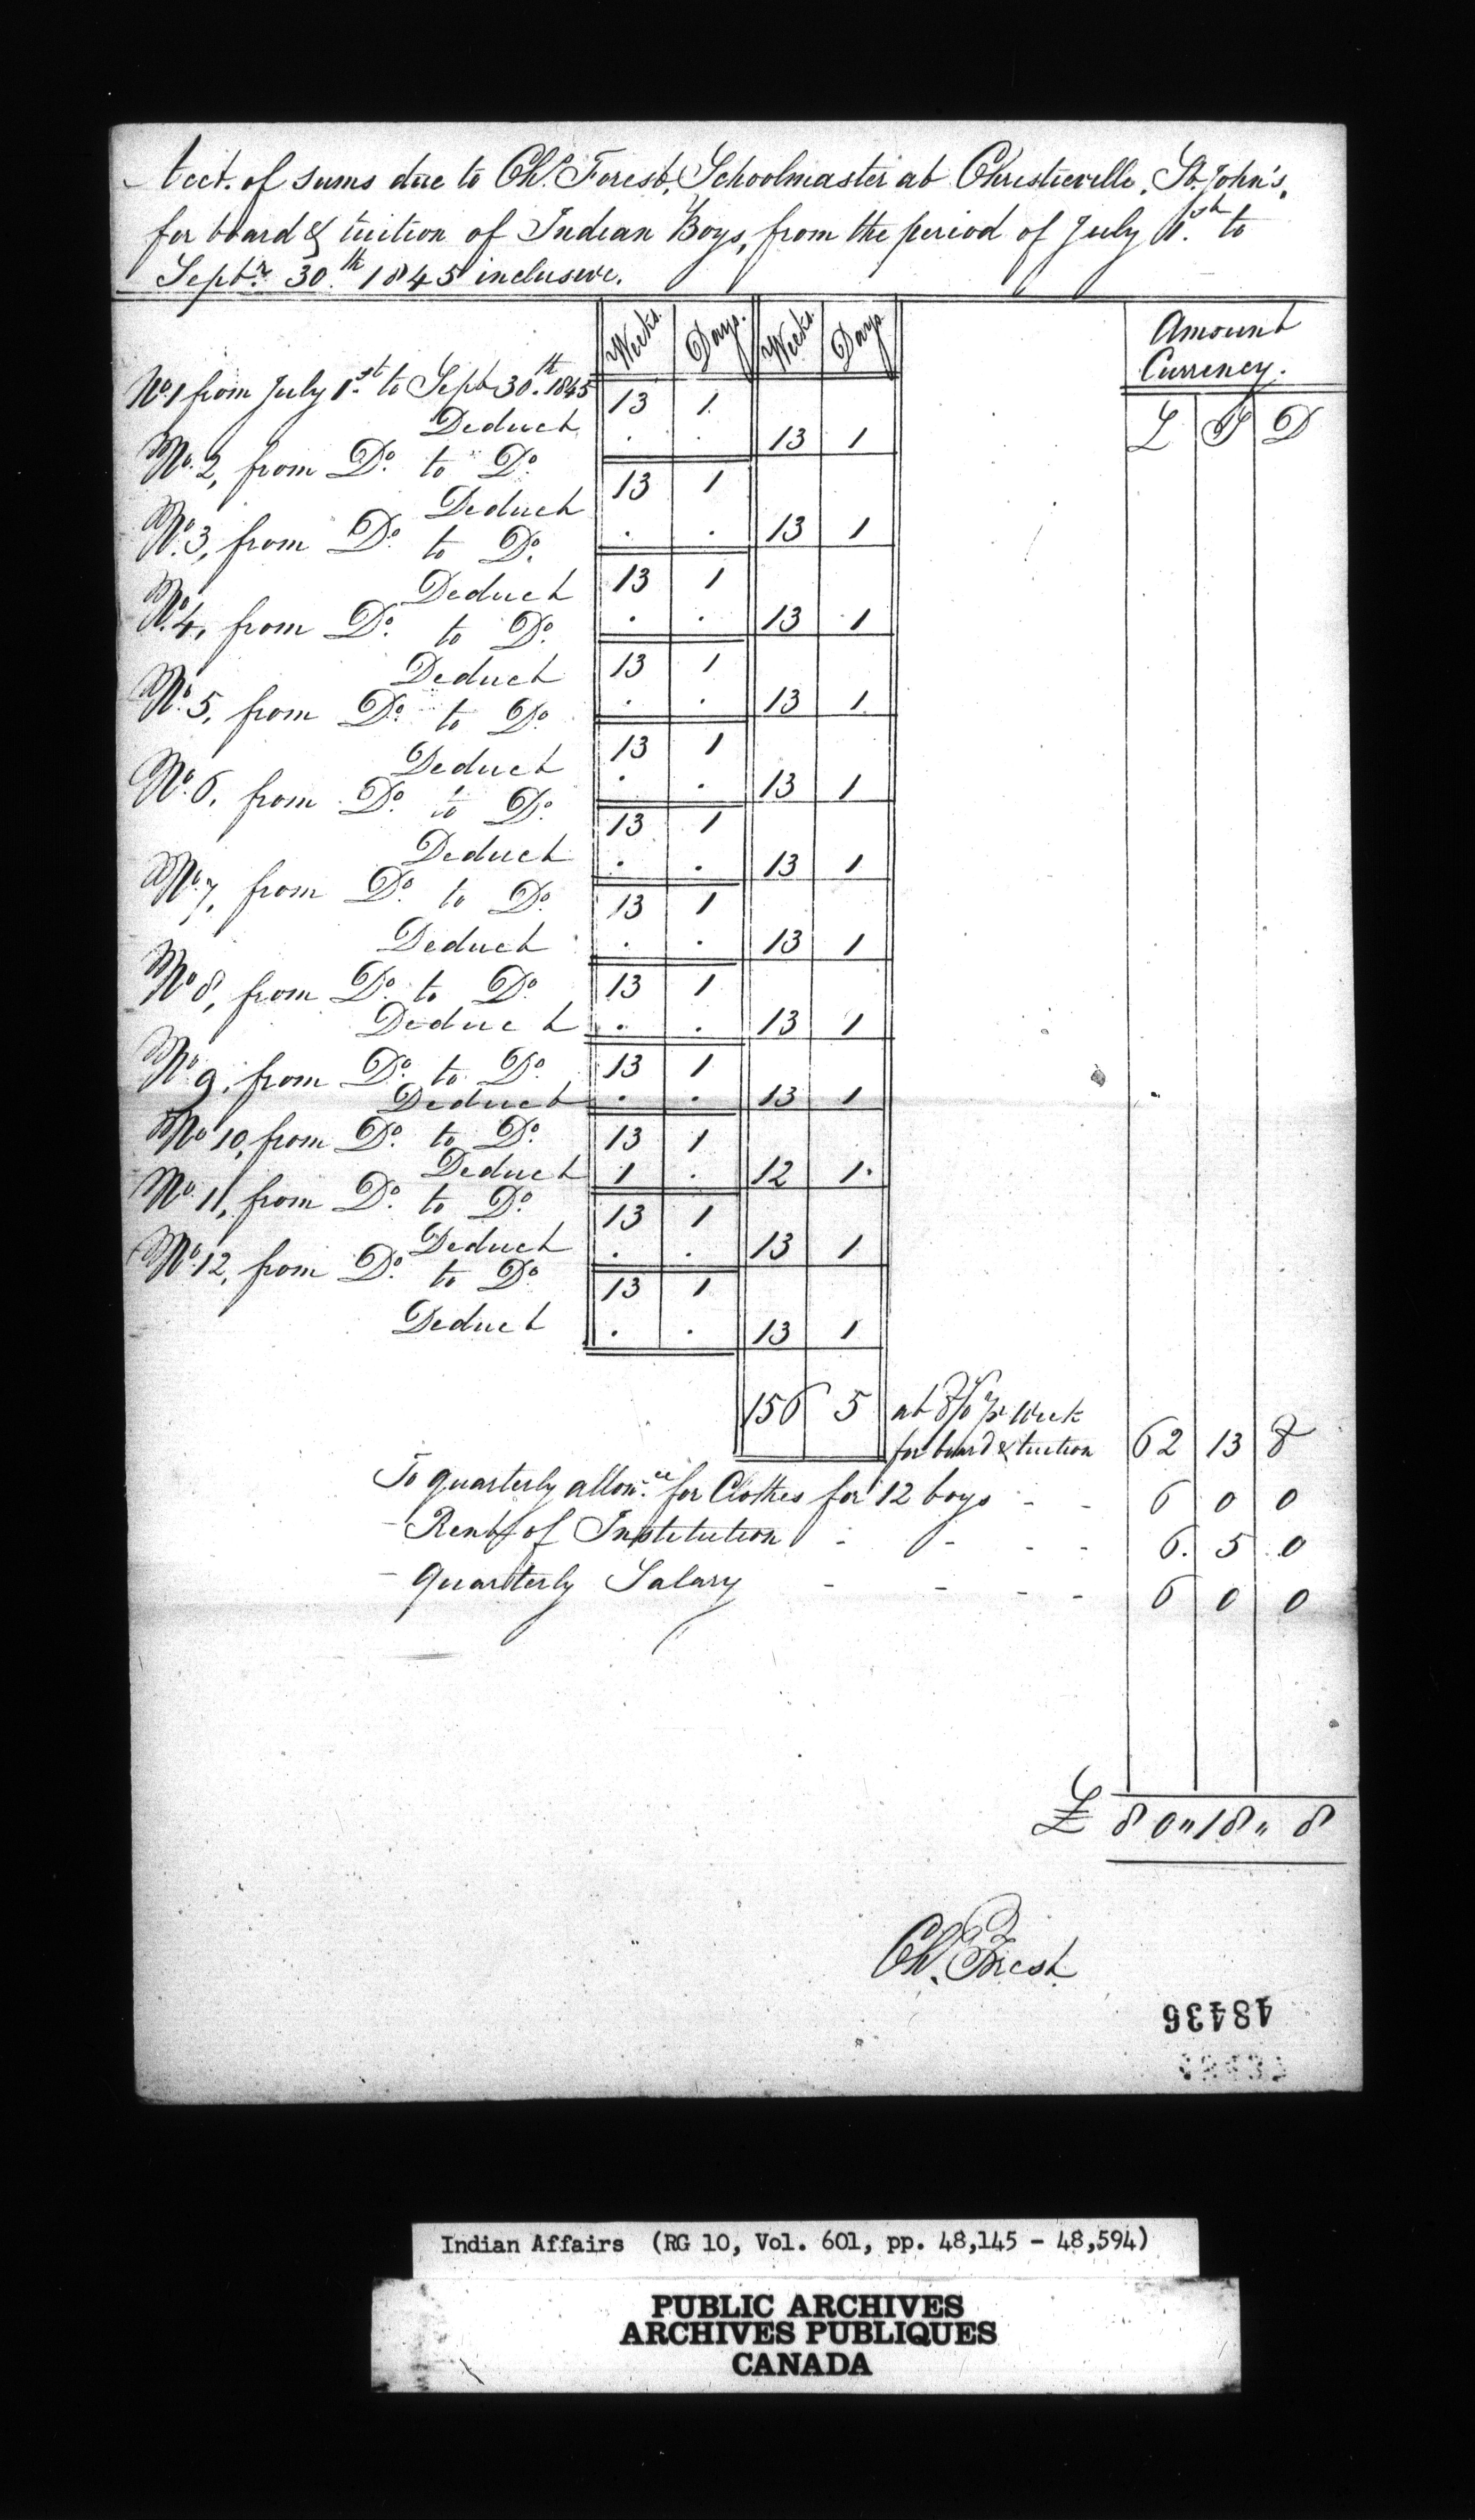 Acct. of sums due to Chs. Forest, Schoolmaster at Christieville, St. John's,
for board & tuition of Indian Boys, from the period of July 1st. to
Septr. 30th. 1845 inclusive.
Weeks. Days. Weeks. Days
Amount
Currency.
£ S D
No. 1 from July 1st. to Sept 30th. 1845 13 1
Deduct . . 13 1
No. 2, from Do. to Do. 13 1
Deduct . . 13 1
No. 3, from Do. to Do. 13 1
Deduct . . 13 1
No. 4, from Do. to Do. 13 1
Deduct . . 13 1
No. 5, from Do. to Do. 13 1
Deduct . . 13 1
No. 6, from Do. to Do. 13 1
Deduct . . 13 1
No. 7, from Do. to Do. 13 1
Deduct . . 13 1
No. 8, from Do. to Do. 13 1
Deduct . . 13 1
No. 9, from Do. to Do. 13 1
Deduct . . 13 1
No. 10, from Do. to Do. 13 1
Deduct 1 . 12 1
No. 11, from Do. to Do. 13 1
Deduct . . 13 1
No. 12, from Do. to Do. 13 1
Deduct . . 13 1
156 5 at 8/0 pr Week
for board & tuition 62 13 8
To quarterly allowce. for Clothes for 12 boys - - 6 0 0
- Rent of Institution - - - - 6. 5 0
- Quarterly Salary - - - - 6 0 0
£ 80 " 18 " 8
Chs. Forest
48436
Indian Affairs (RG 10, Vol. 601, pp. 48,145 - 48,594)
PUBLIC ARCHIVES
ARCHIVES PUBLIQUES
CANADA